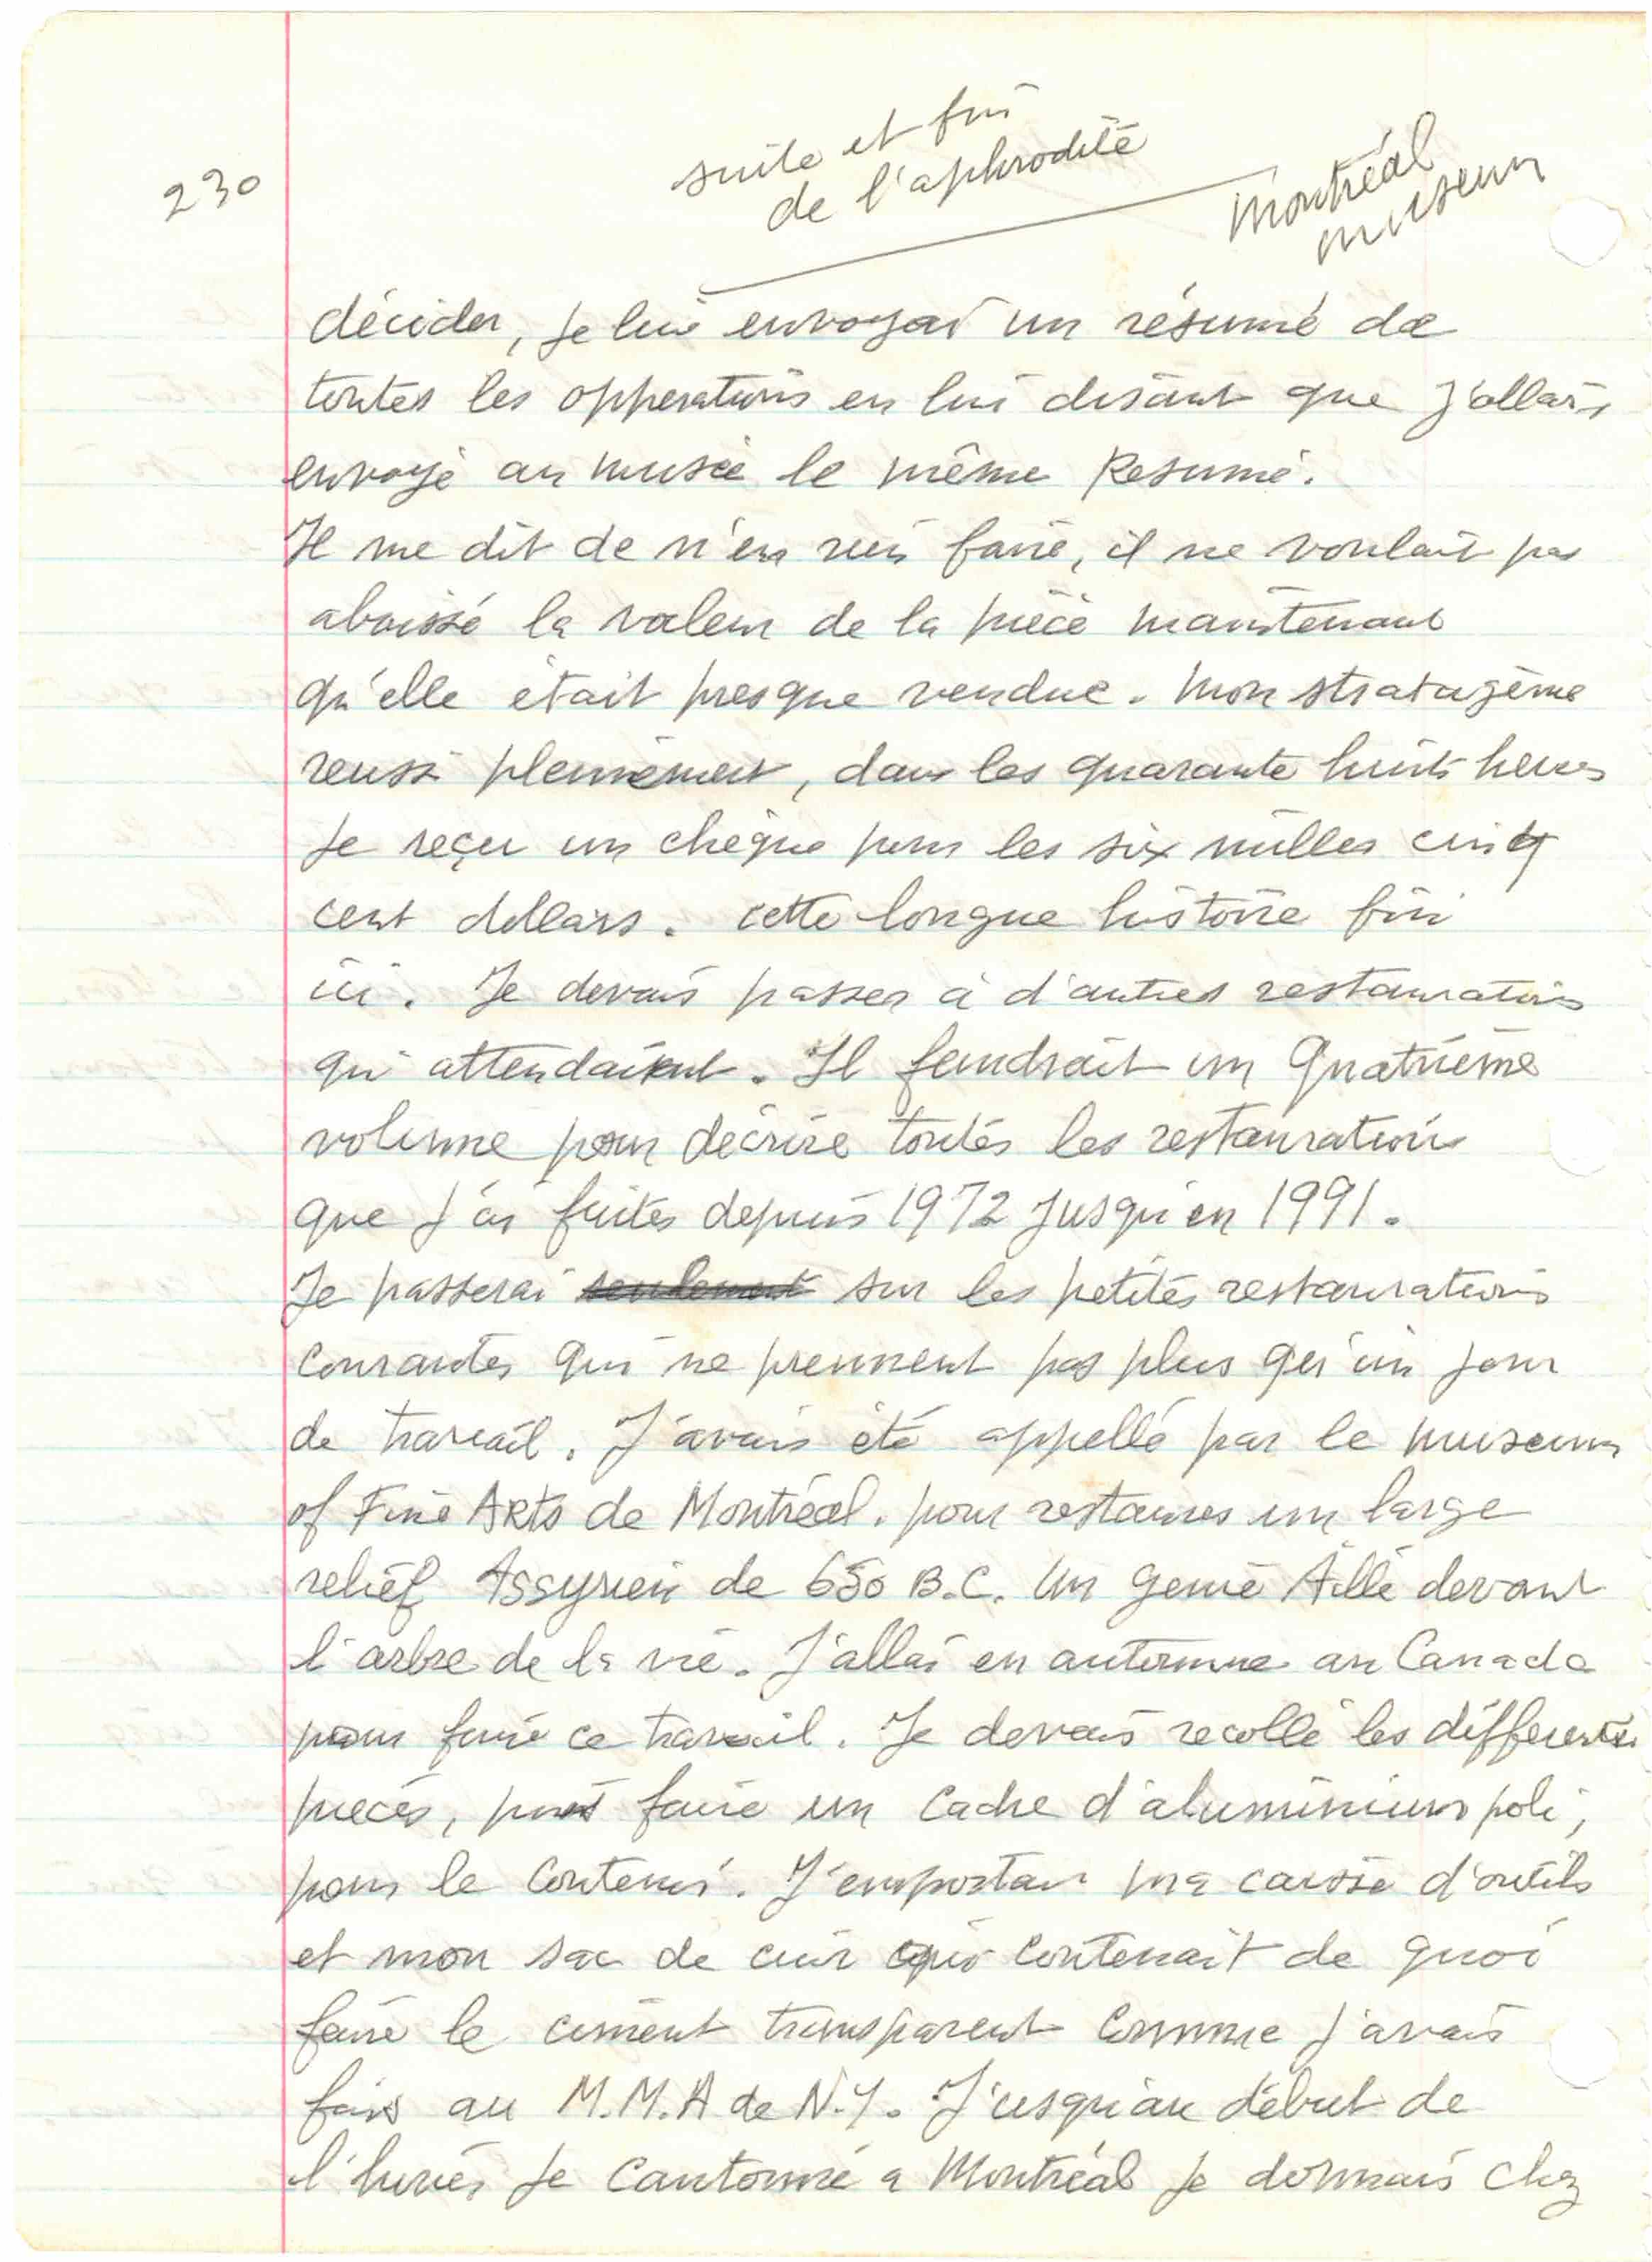 230
suite et fin
de l'aphrodite
Montréal
museum
décider, je lui envoyai un résumé de
toutes les opperations en lui disant que j'allais
envoyé au musée le même Resumé.
Il me dit de n'en rien faire, il ne voulait pas
abaissé la valeur de la pièce maintenant
qu'elle était presque vendue. Mon stratagème
reussi pleinement, dans les quarante huits heures
Je reçu un chèque pour les six milles cinq
cent dollars. cette longue histoire fini
ici. Je devais passer à d'autres restaurations
qui attendaient. Il faudrait un Quatrième
volume pour decrire toutes les restaurations
que j'ai faites depuis 1972 jusqu'en 1991.
Je passerai seulement sur les petites restaurations
Courantes qui ne prennent pas plus qu'un jour
de travail. J'avais été appellé par le museum
of Fine Arts de Montréal. pour restaurer un large
relief Assyrien de 650 B.C. Un Genie Aillé devant
l'arbre de la vie. J'allai en automne au Canada
pour faire ce travail. Je devais recollé les différentes
pièces, puis faire un Cadre d'aluminium poli,
pour le Contenir. J'emportai ma caisse d'outils
et mon sac de cuir qui contenait de quoi
faire le ciment transparent Comme j'avais
fais au M.M.A de N.Y. J'usqu'au début de
l'hiver, je Cantonné a Montréal je dormais chez